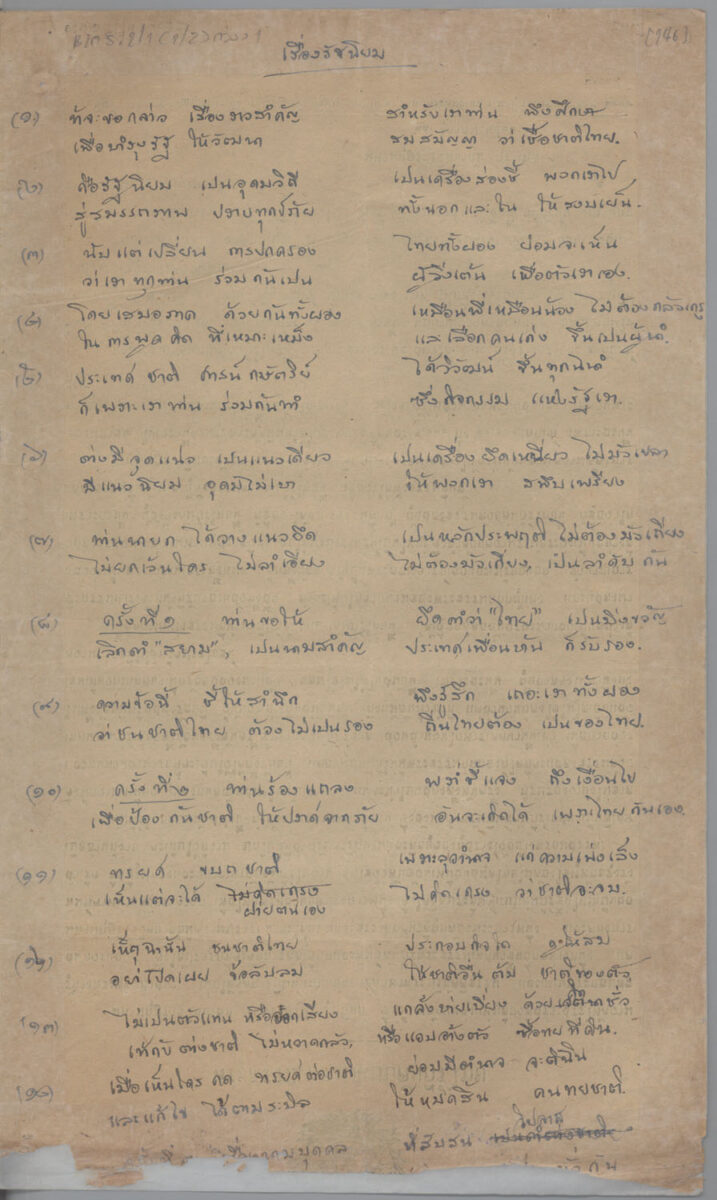 (146)
เรื่องรัฐนิยม
(๑) ข้าจะขอกล่าว เรื่องราวสำคัญ สำหรับเราท่าน พึงศึกษา
เพื่อบำรุงรัฐ ให้วัฒนา สมสมัญญา ว่าเชื้อชาติไทย.
(๒) คือรัฐนิยม เปนอุดมวิถี เป็นเครื่องส่องชี้ พวกเราไป
สู่สมรรถภาพ ปราบทุกข์ภัย ทั้งนอกและใน ให้สงบเย็น.
(๓) นับแต่เปลี่ยน การปกครอง ไทยทั้งผอง ย่อมจะเห็น
ว่าเราทุกท่าน ร่วมกันเปน ผู้วิ่งเต้น เพื่อตัวเราเอง.
(๔) โดยเสมอภาค ด้วยกันทั้งผอง เหมือนพี่เหมือนน้อง ไม่ต้องกลัวเกรง
ในการพูดคิด ที่เหมาะเหม็ง และเลือกคนเก่ง ขึ้นเป็นผู้นำ.
(๕) ประเทศ ชาติ ศาสน์ กษัตริย์ ได้วิวัฒน์ ขึ้นทุก
ก็เพราะเราท่าน ร่วมกันทำ ซึ่งกิจกรรม แห่งรัฐเรา.
(๖) ต่างมีจุดแน่ว เปนแนวเดียว เป็นเครื่องยึดเหนี่ยว ไม่มัวเขลา
มีแนวนิยม อุดมไม่เบา ให้พวกเรา พรึบเพรียง
(๗) ท่านนายก ได้วางแนวยึด เป็นหลักประพฤติ ไม่ต้องมัวเถียง
ไม่ยกเว้นใคร ไม่ลำเอียง ไม่ต้องมัวเกี่ยง, เป็นลำดับกัน
(๘) ครั้งที่ ๑ ท่านขอให้ ยึดคำว่า "ไทย" เป็นมิ่งขวัญ
เลิกคำ "สยาม", เป็นนามสำคัญ ประเทศเพื่อนบ้าน ก็รับรอง.
(๙) ความข้อนี้ ชี้ให้สำนึก พึงรู้สึก เถอะเราทั้งผอง
ว่าชนชาติไทย ต้องไม่เปนรอง ถิ่นไทยต้อง เป็นของไทย.
(๑๐) ครั้งที่ ๒ ท่านร้องแถลง ชี้แจง ถึงเงื่อนไข
เพื่อป้องกันชาติ ให้ปราศจากภัย อันจะเกิดได้ เพราะไทยกันเอง.
(๑๑) ทรยศ ขบถชาติ แก่ความเพ่งเล็ง
เห็นแต่จะได้ ไม่คิดเกรง ฝ่ายตนเอง ไม่คิดเกรง ว่าชาติจะจม.
(๑๒) เหตุฉะนั้น ชนชาติไทย ประกอบกิจใด ให้สม
อย่าเปิดเผย ข้อลับลม ให้ชาติอื่น ชาติของตัว
(๑๓) ไม่เป็นตัวแทน หรือออกเสียง ด้วย ชั่ว
ให้กับต่างชาติ ไม่หวาดกลัว, หรือแอบอ้างตัว ซื้อขายที่ดิน.
(๑๔) เมื่อเห็นใครคด ทรยศต่อชาติ ย่อมมีอำนาจ จะติฉิน
และแก้ไข ได้ตามระบิล ให้หมดสิ้น คนขายชาติ.
ที่สับสน
บุคคล กัน